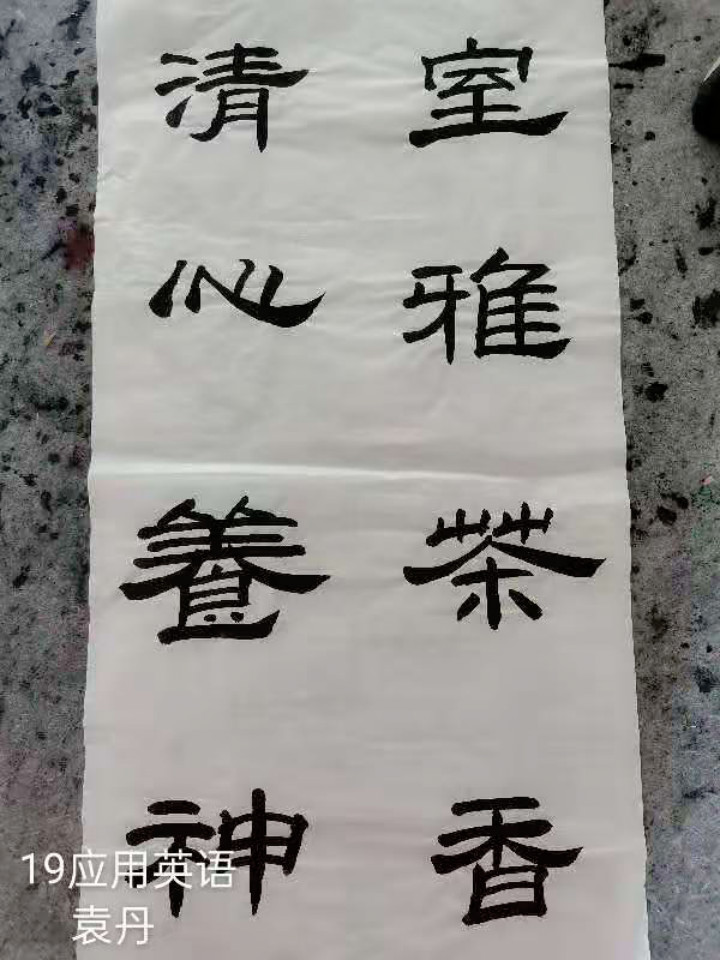 室雅茶香
清心養神
19应用英语
袁丹